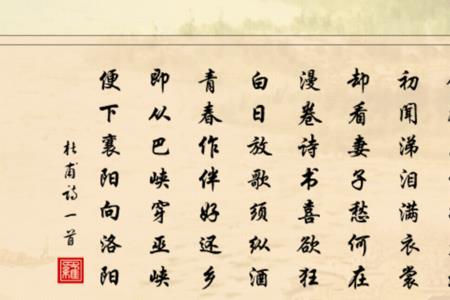 初闻涕泪满衣裳
却看妻子愁何在
漫卷诗书喜欲狂
白日放歌须纵酒
青春作伴好还乡
即从巴峡穿巫峡
便下襄阳向洛阳
杜甫诗一首